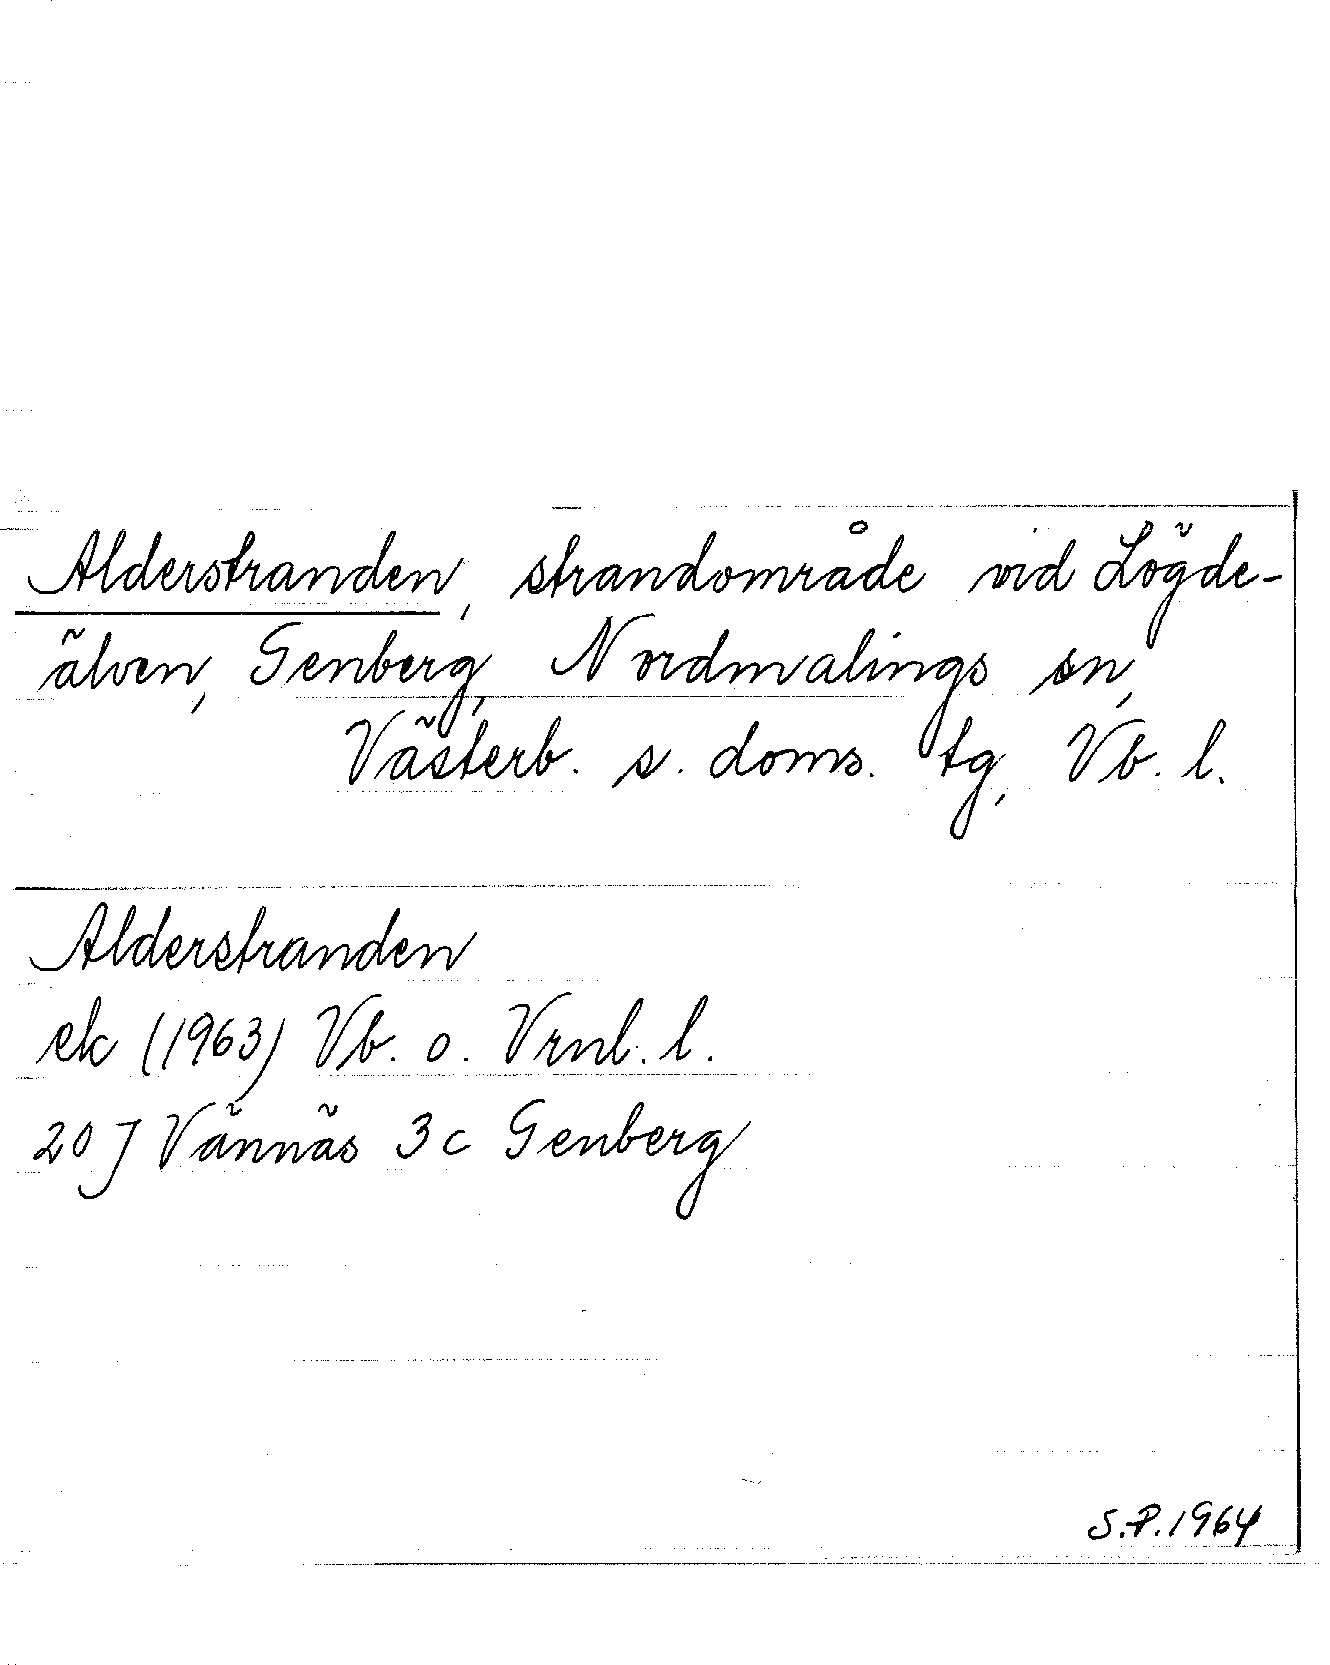 Alderstranden, strandområde vid Lögde-
älven, Genberg, Nordmalings sn,
Västerb. s. doms. tg, Vb. l.
Alderstranden
ek (1963) Vb. o. Vrnl. l.
20 J Vännäs 3c Genberg
S.P. 1964